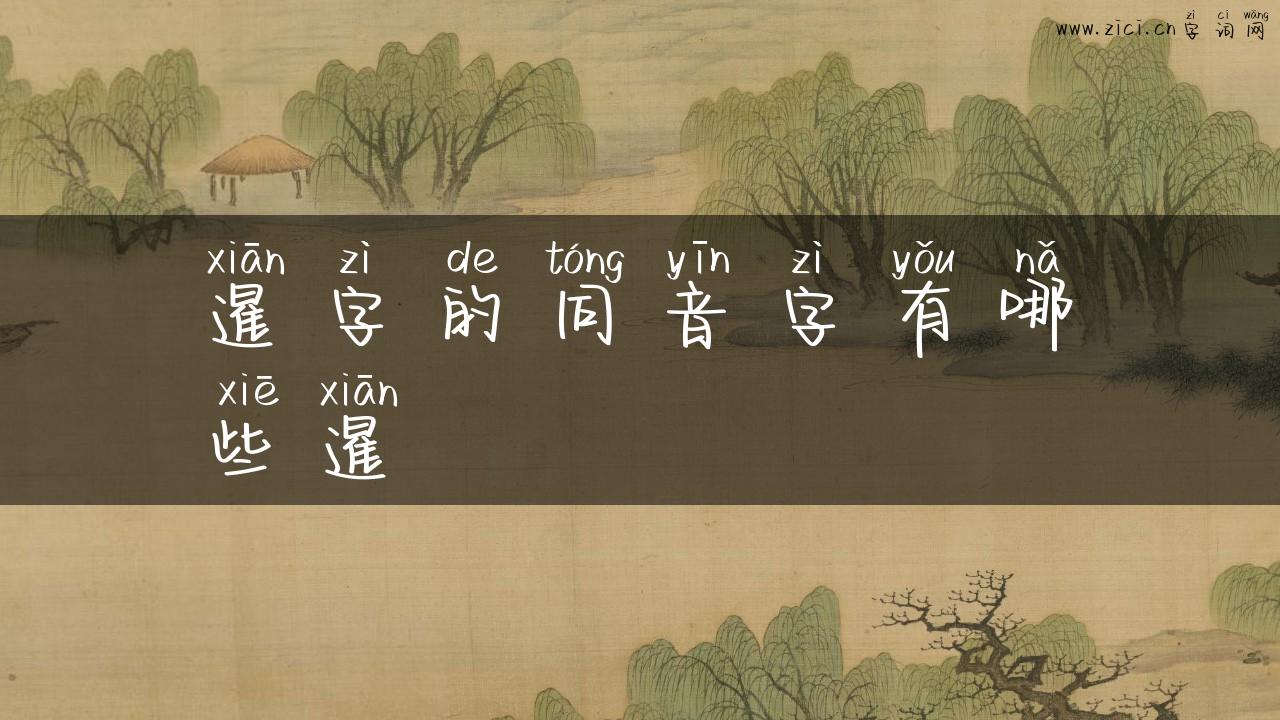 zì cí wǎng
www.zici.cn 字词网
xiān zì de tóng yīn zì yǒu nǎ
暹字的同音字有哪
xiē xiān
些暹